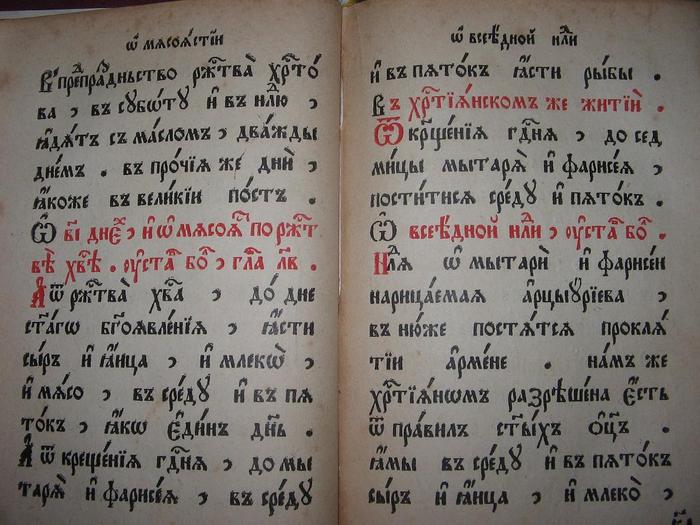 Ѡ мѧсоѧ́стїи
В̾ препра́дньство рж҇тва̀ хр҇то́
ва , въ сꙋбѡ́тꙋ и҆ въ нлⷣю ,
ꙗ҆дѧ́тъ съ ма́сломъ , два́жды
дне́мъ . въ про́чїѧ же днѝ ,
ꙗ҆́коже въ вели́кїи по́стъ .
Ѡ҆ в҃і днеⷯ , и҆ ѡ҆ мѧсоѧⷭ҇ по рж҇т
вѣ̀ хв҃ѣ . ᲂу҆стаⷡ҇ бо҇ , гла҇ л҃в .
А҆ ѿ рж҇тва̀ хв҃а , до́ дне
ст҃а́гѡ бг҃оѧвле́нїѧ , ꙗ҆́сти
сы́ръ и҆ ꙗ҆́ица , и҆ млеко̀ ,
и҆ мѧ́со , въ сре́дꙋ и҆ въ пѧ
то́къ , ꙗ҆́кѡ є҆ди́нъ дн҃ь .
А҆ ѿ креще́нїѧ гдⷭ҇нѧ , до мы
тарѧ̀ и҆ фарисе́ѧ , въ сре́дꙋ
Ѡ҆ всеѣ́дной нлⷣи
и҆ въ пѧто́къ ꙗ҆́сти ры́бы .
В ъ хрⷭ҇тїѧ́нскомъ же житїѝ .
Ѿ кр҃ще́нїѧ гдⷭ҇нѧ , до сед
ми́цы мытарѧ̀ и҆ фарисе́ѧ ,
пости́тисѧ сре́дꙋ и҆ пѧто́къ .
Ѡ҆ всеѣ́дной нлⷣи , ᲂу҆стаⷡ҇ бо҇ .
Н лⷣѧ ѡ҆ мытарѝ и҆ фарисе́и
нарица́емаѧ а҆рцыꙋ́рїева ,
въ ню́же постѧ́тсѧ проклѧ́
тїи а҆рме́не . на́мъ же
хрⷭ҇тїѧ́нѡмъ разрѣше́на є҆́сть
ѿ пра́вилъ ст҃ы́хъ ѻ҆ц҃ъ .
ꙗ҆́мы въ сре́дꙋ и҆ въ пѧто́къ
сы́ръ и҆ ꙗ҆́ица , и҆ млеко̀ ,